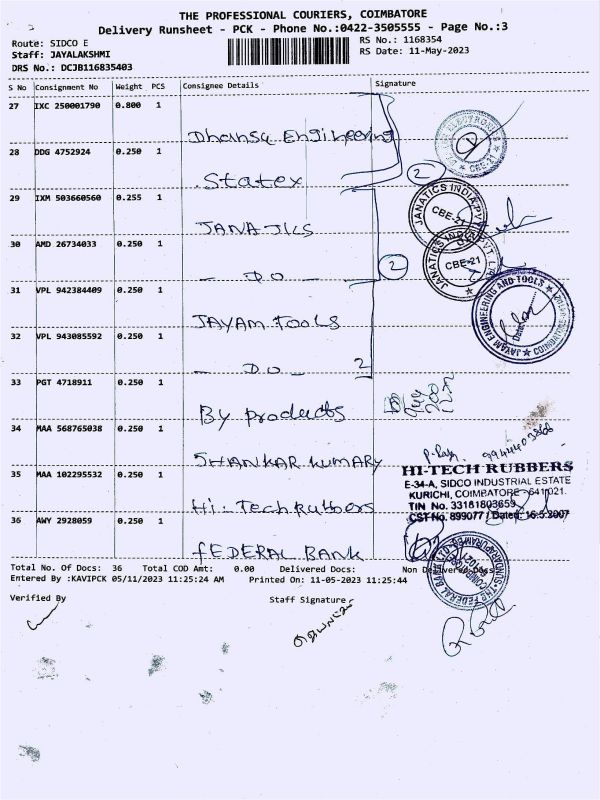 THE PROFESSIONAL COURIERS, COIMBATORE
Delivery Runsheet - PCK - Phone No.:0422-3505555 - Page No.:3
Route: SIDCO E
RS No.: 1168354
Staff: JAYALAKSHMI
RS Date: 11-May-2023
DRS No.: DCJB116835403
S No Consignment No Weight PCS Consignee Details Signature
27 IXC 250001790 0.800 1
Dhansu Engineering
28 DDG 4752924 0.250 1
Statex
2
29 IXM 503660560 0.255 1
JANATICS INDIA PVT
CBE-21
JANATICS
30 AMD 26734033 0.250 1
CBE-21
— DO — 2
31 VPL 942384409 0.250 1
JAYAM ENGINEERING AND TOOLS
JAYAM TOOLS
32 VPL 943085592 0.250 1
— DO — 2
33 PGT 4718911 0.250 1
By products
34 MAA 568765038 0.250 1
SHANKAR KUMARY
HI-TECH RUBBERS
35 MAA 102295532 0.250 1
E-34-A, SIDCO INDUSTRIAL ESTATE
KURICHI, COIMBATORE - 641021.
TIN No. 33181803659
Hi-Tech Rubbers
CST No. 899077 / Dated: 16.5.2007
36 AWY 2928059 0.250 1
FEDERAL BANK
Total No. Of Docs: 36 Total COD Amt: 0.00 Delivered Docs: Non Delivered Docs:
Entered By :KAVIPCK 05/11/2023 11:25:24 AM Printed On: 11-05-2023 11:25:44
Verified By Staff Signature